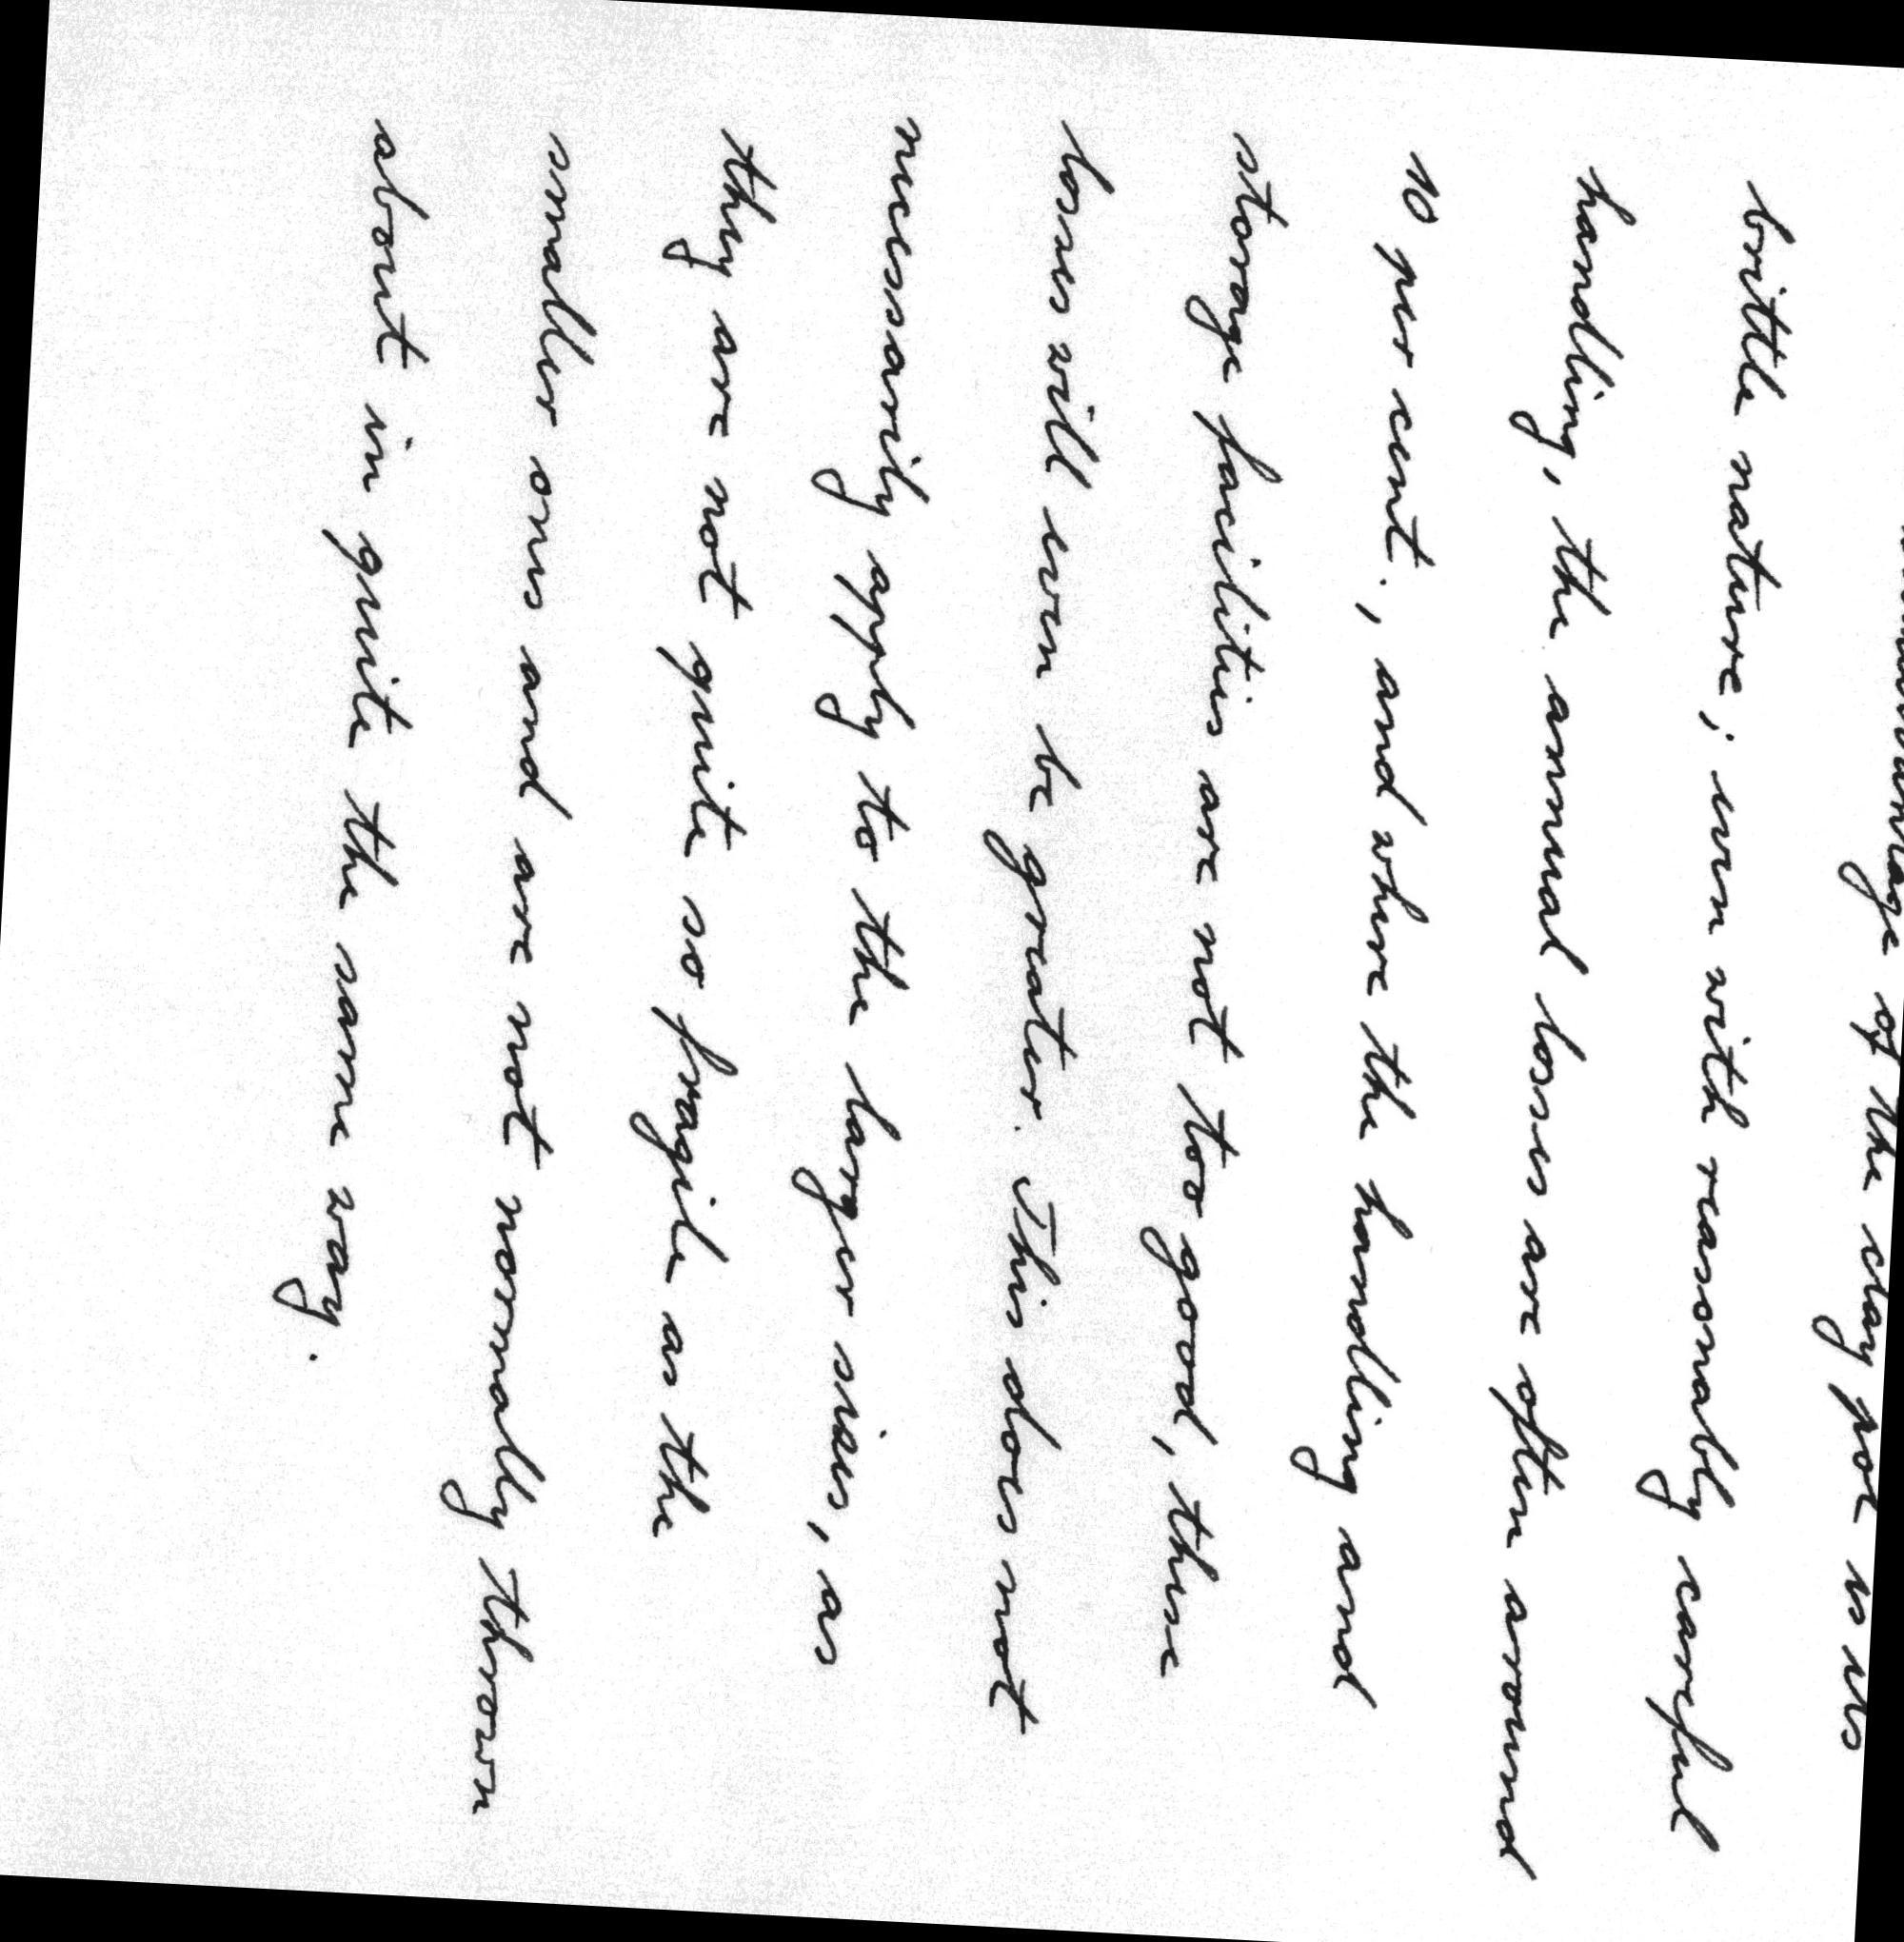 of the clay pot is its
brittle nature; even with reasonably careful
handling, the annual losses are often around
10 per cent., and where the handling and
storage facilities are not too good, these
losses will even be greater. This does not
necessarily apply to the larger sizes, as
they are not quite so fragile as the
smaller ones and are not normally thrown
about in quite the same way.